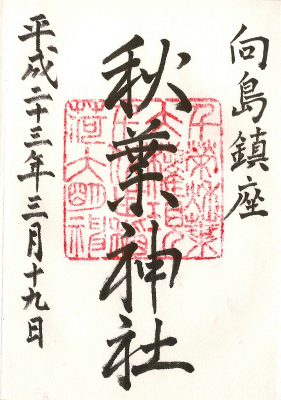 向島鎮座
秋葉神社
平成二十三年三月十九日